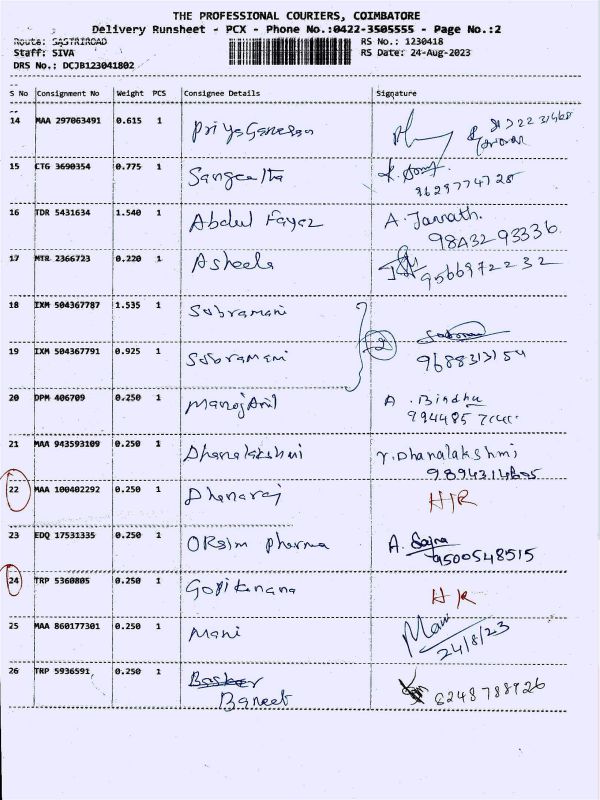 THE PROFESSIONAL COURIERS, COIMBATORE
Delivery Runsheet - PCX - Phone No.:0422-3505555 - Page No.:2
Route: SASTRIROAD RS No.: 1230418
Staff: SIVA RS Date: 24-Aug-2023
DRS No.: DCJB123041802
S No Consignment No Weight PCS Consignee Details Signature
14 MAA 297063491 0.615 1 Priya Ganesan
15 CTG 3690354 0.775 1 Sangeetha 9629774728
16 TDR 5431634 1.540 1 Abdul Fayaz A. Jannath.
98432 93336
17 MTR 2366723 0.220 1 Asheela 9566972232
18 IXM 504367787 1.535 1 Sabramani
19 IXM 504367791 0.925 1 Sabramani 2 9688313154
20 DPM 406709 0.250 1 Manoj Anil A. Bindhu
21 MAA 943593109 0.250 1 Dhanalakshmi Y. Dhanalakshmi
22 MAA 100402292 0.250 1 Dhanaraj H/R
23 EDQ 17531335 0.250 1 ORsim pharma A. Sajna
9500548515
24 TRP 5360805 0.250 1 H/R
25 MAA 860177301 0.250 1 Mani Mani
24/8/23
26 TRP 5936591 0.250 1 Basker
Baneeb 8248788926